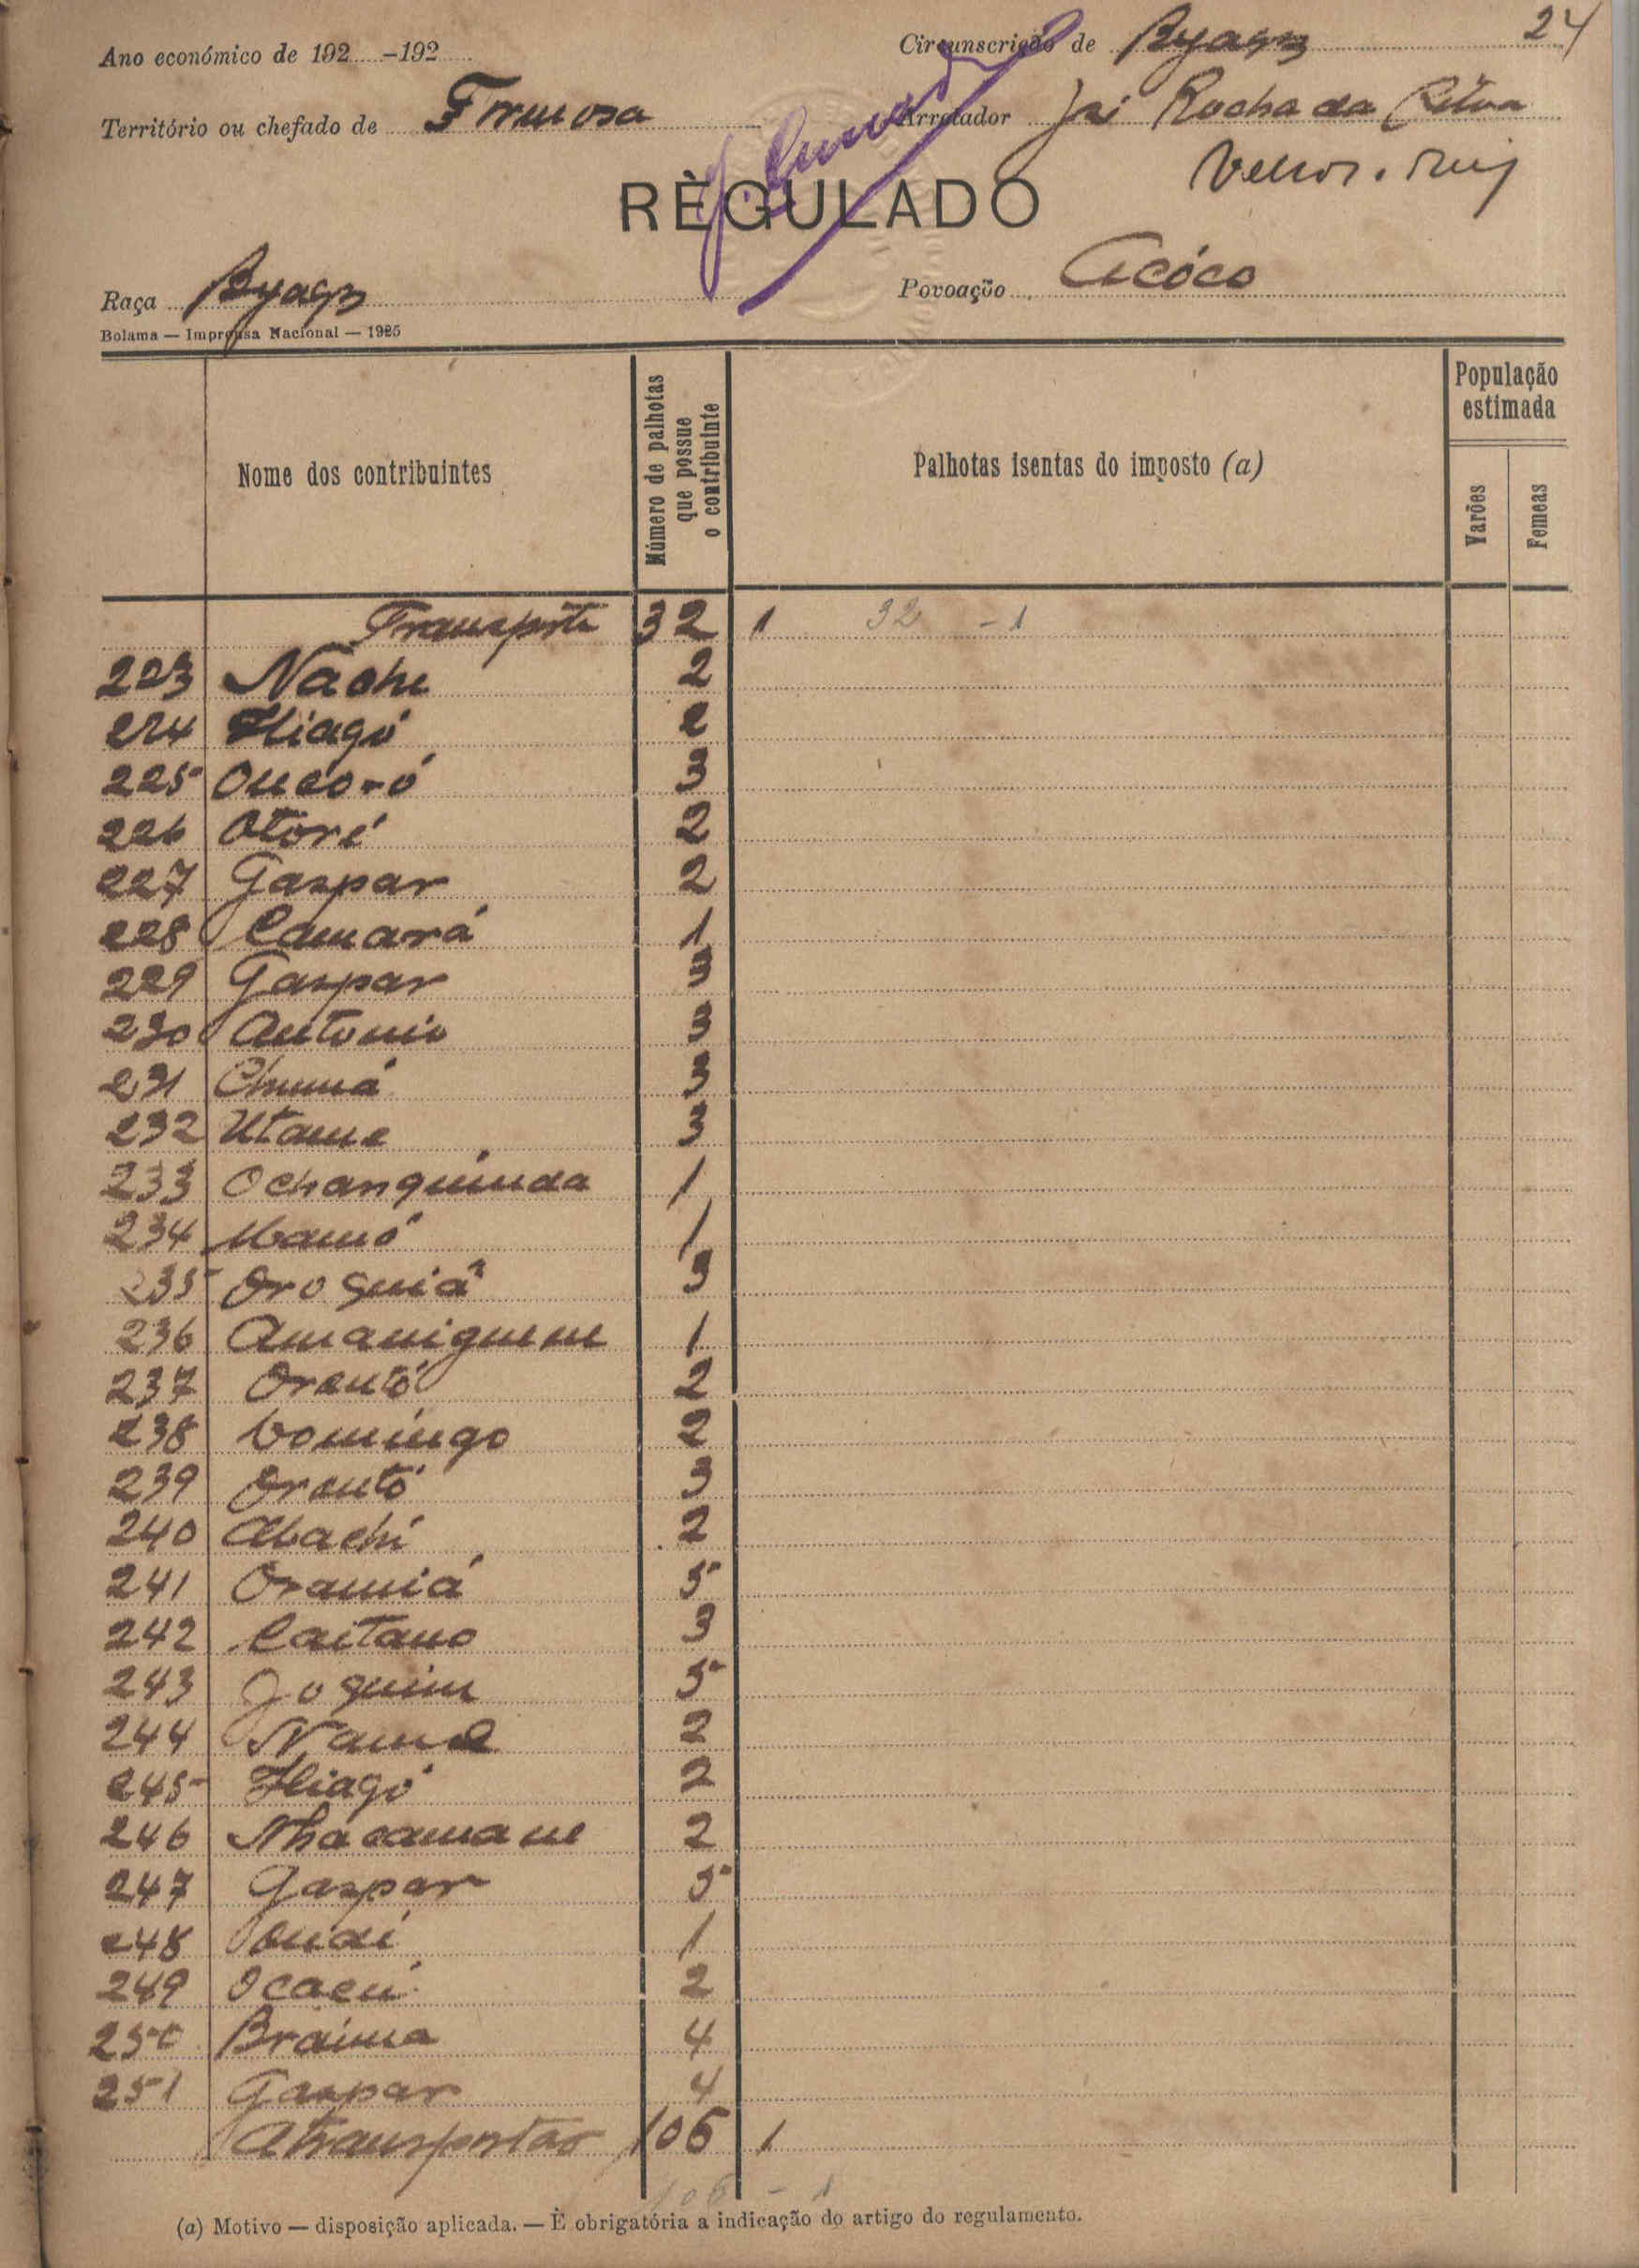 24
Ano económico de 192.....-192.....
Circunscrição de Byagoz
Território ou chefado de Formosa
Arrolador José Rocha da Silva
RÈGULADO
Raça Byagoz
Povoação Acóco
Bolama — Imprensa Nacional — 1925
Nome dos contribuintes
Número de palhotas que possue o contribuinte
Palhotas isentas do imposto (a)
População estimada
Varões
Femeas
Transporte 32 1 32 - 1
223 Nache 2
224 Thiagó 2
225 3
226 Otoré 2
227 Gaspar 2
228 Camará 1
229 Gaspar 3
230 Antonio 3
231 Chumá 3
232 Utame 3
233 Ochanquinda 1
234 1
235 Oroquiá 3
236 1
237 Orentó 2
238 Domingo 2
239 Orentó 3
240 Abachi 2
241 Oramiá 5
242 Caitano 3
243 Joquim 5
244 Name 2
245 Thiagó 2
246 Nhacamane 2
247 Gaspar 5
248 1
249 2
250 Braima 4
251 Gaspar 4
A transportar 106 1
106 - 1
(a) Motivo — disposição aplicada. — É obrigatória a indicação do artigo do regulamento.